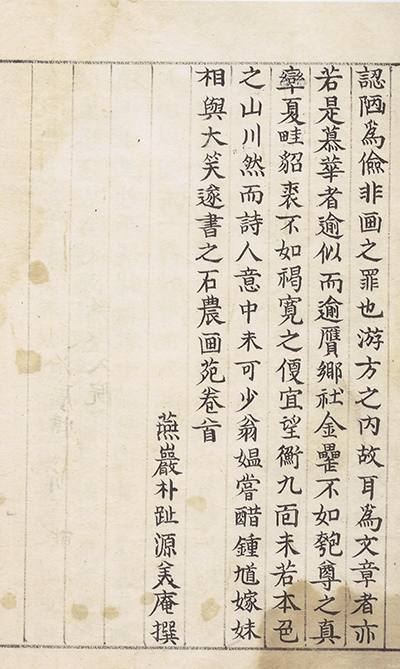 認陋為儉非画之罪也游方之内故耳為文章者亦
若是慕華者逾似而逾贋鄉社金罍不如匏尊之真
夏畦貂裘不如褐寬之便宜望衡九面未若本色
之山川然而詩人意中未可少翁媼嘗醋鍾馗嫁妹
相與大笑遂書之石農画苑卷首
燕巖朴趾源美庵撰